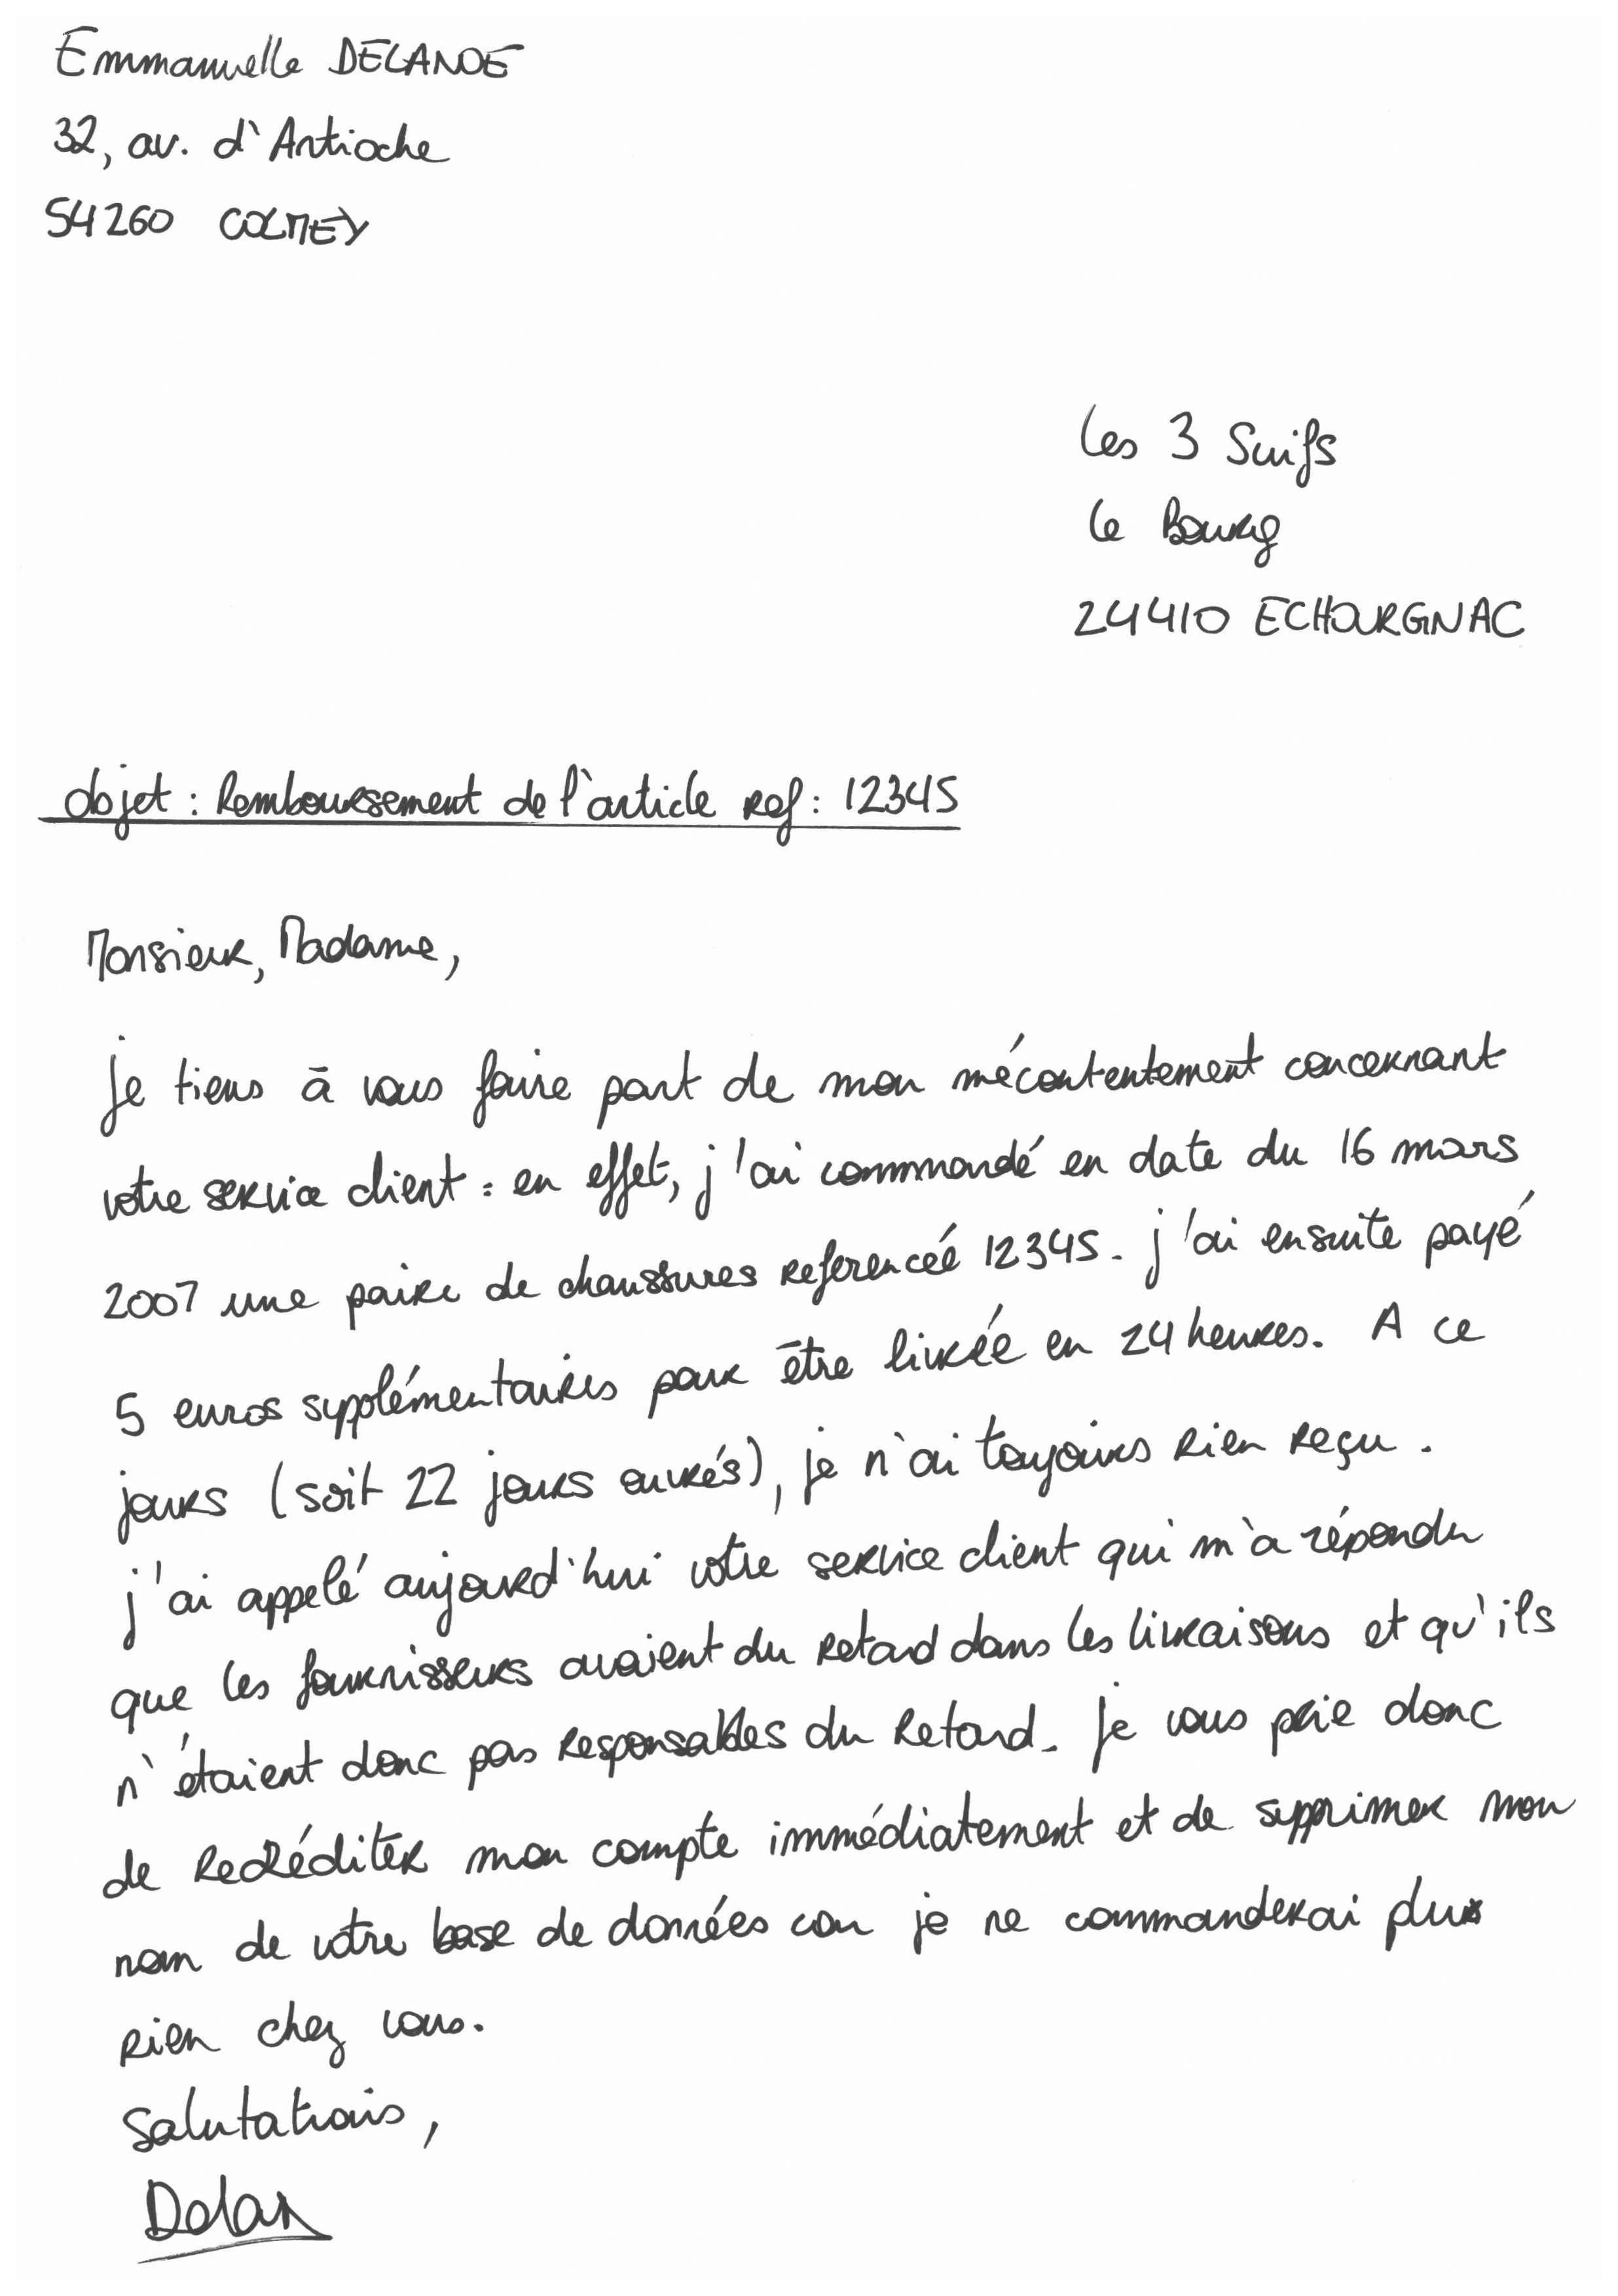 Emmanuelle DELANOE
32, av. d'Antioche
54260 COLMEY
Les 3 Suifs
Le Bourg
24410 ECHOURGNAC
objet : Remboursement de l'article ref : 12345
Monsieur, Madame,
Je tiens à vous faire part de mon mécontentement concernant
votre service client : en effet, j'ai commandé en date du 16 mars
2007 une paire de chaussures referenceé 12345. j'ai ensuite payé
5 euros supplémentaires pour être livrée en 24 heures. A ce
jours (soit 22 jours ouvrés), je n'ai toujours rien reçu.
j'ai appelé aujourd'hui votre service client qui m'a répondu
que les fournisseurs avaient du retard dans les livraisons et qu'ils
n'étaient donc pas responsables du retard. Je vous prie donc
de recréditer mon compte immédiatement et de supprimer mon
nom de votre base de données car je ne commanderai plus
rien chez vous.
Salutations,